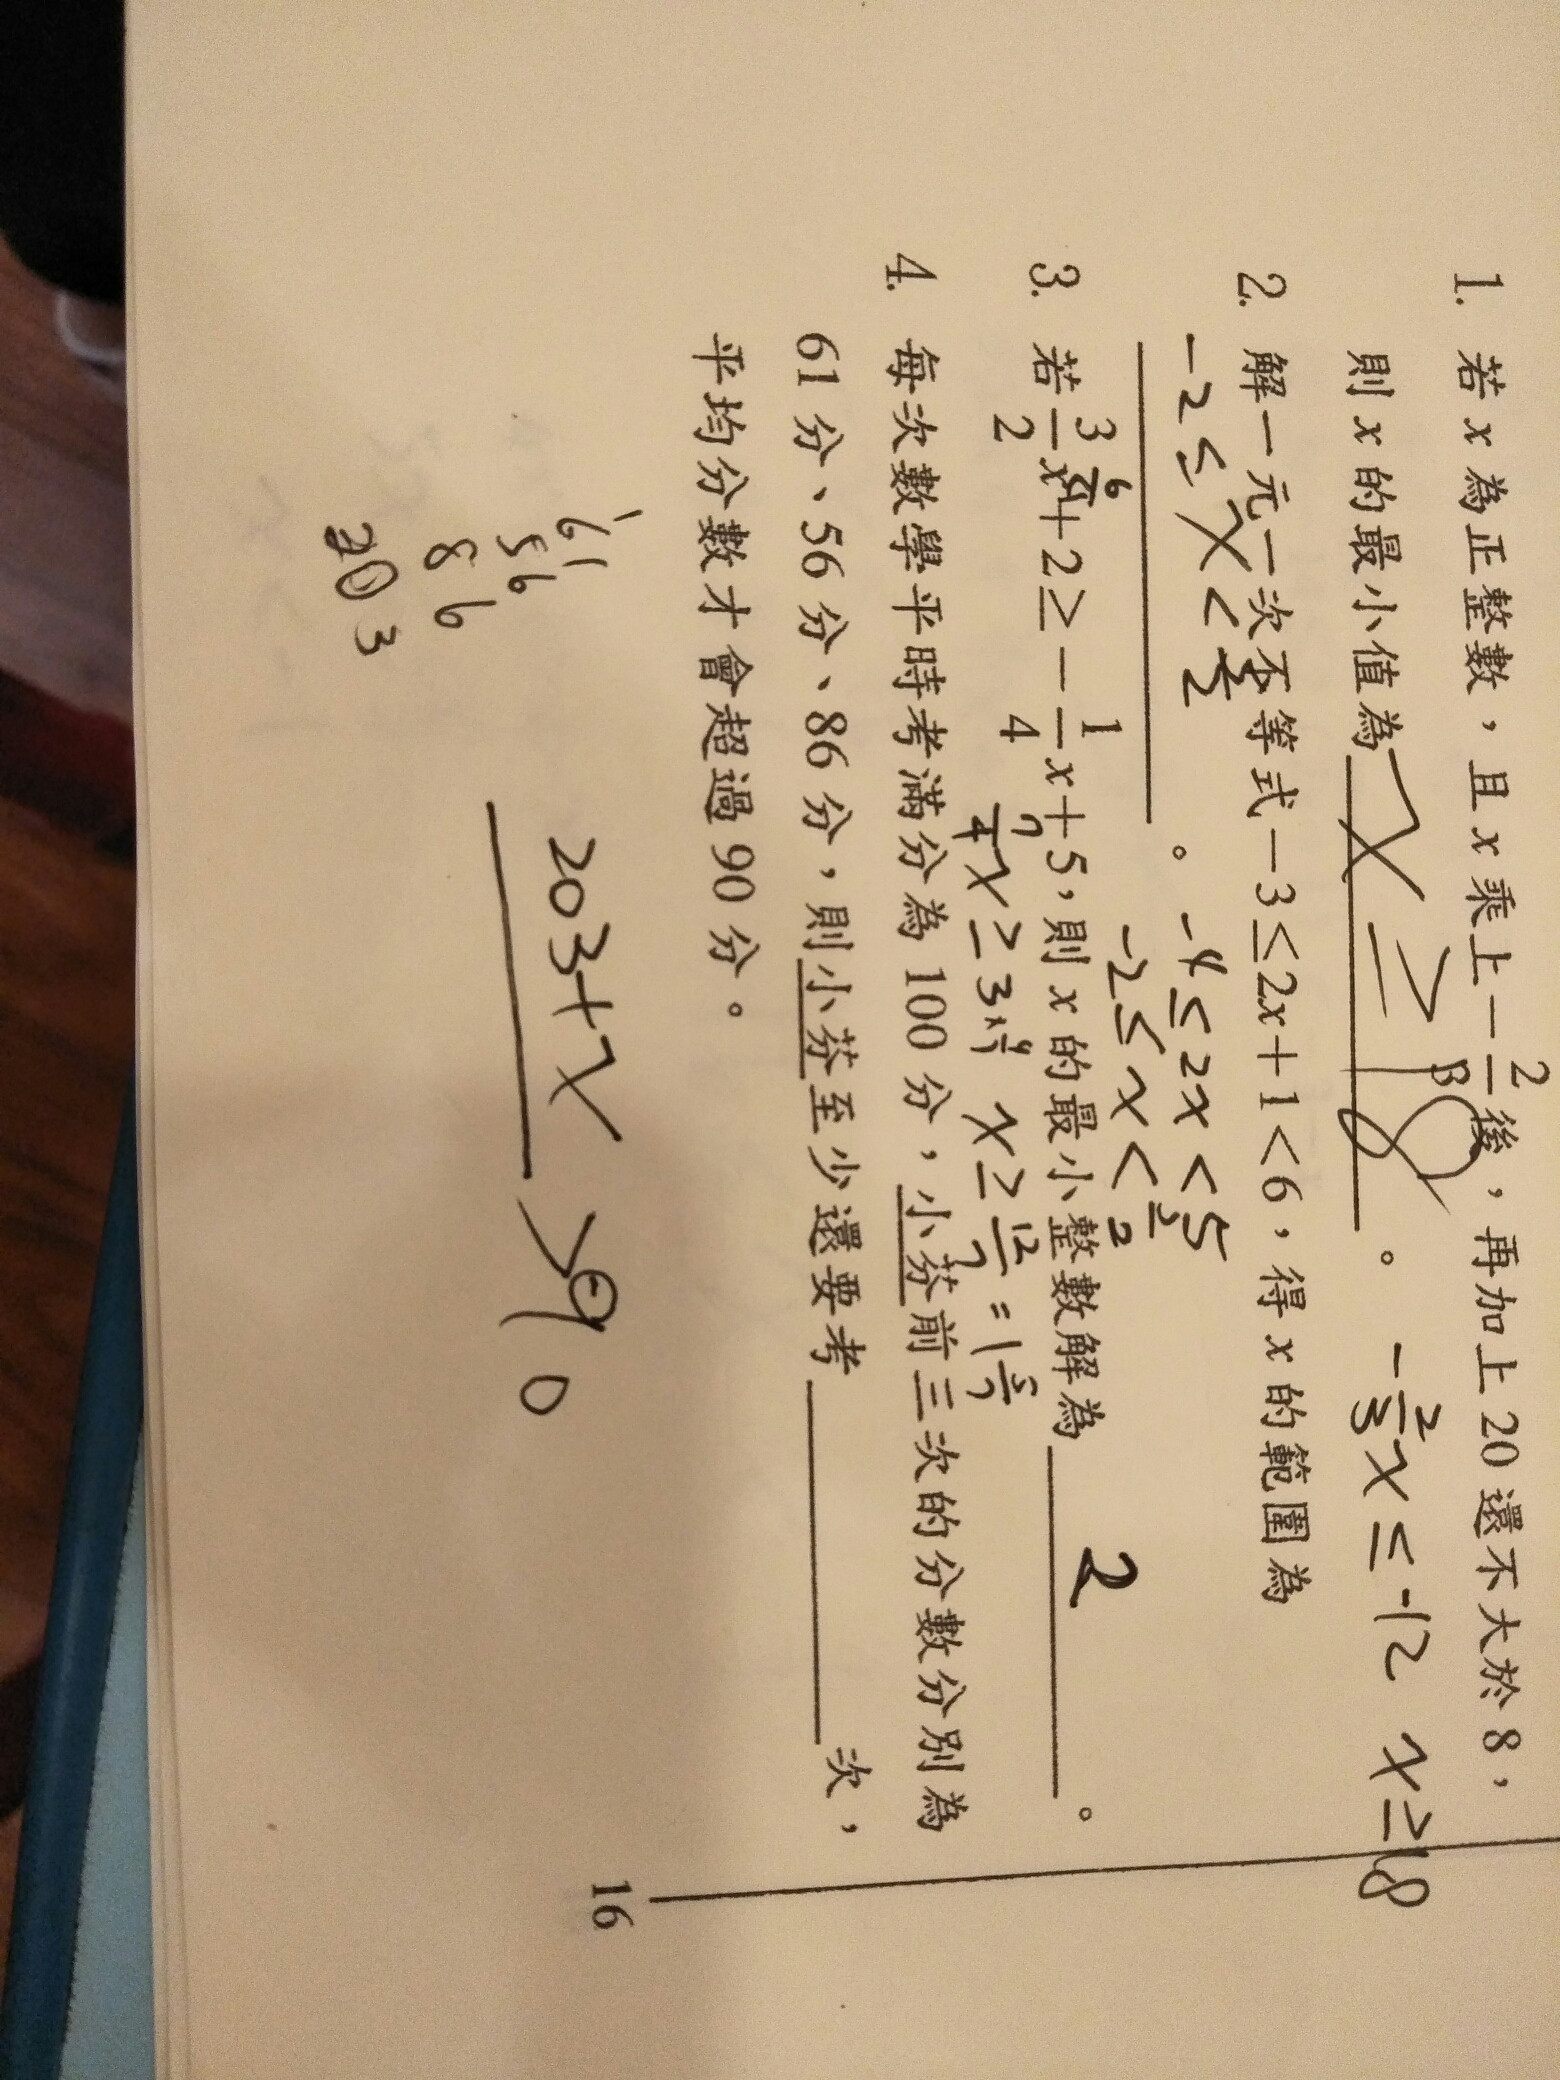 1. 若 x 為正整數，且 x 乘上 -2/3 後，再加上 20 還不大於 8，
則 x 的最小值為 x ≥ 18。 -2/3 x ≤ -12 x ≥ 18
2. 解一元一次不等式 -3 ≤ 2x + 1 < 6，得 x 的範圍為
-2 ≤ x < 5/2。 -4 ≤ 2x < 5
-2 ≤ x < 5/2
3. 若 3/2 x + 2 ≥ -1/4 x + 5，則 x 的最小整數解為 2。
6/4 7/4 x ≥ 3 × 4/7 x ≥ 12/7 = 1 5/7
4. 每次數學平時考滿分為 100 分，小芬前三次的分數分別為
61 分、56 分、86 分，則小芬至少還要考 次，
平均分數才會超過 90 分。
16
203+x > 90
1
61
56
86
203